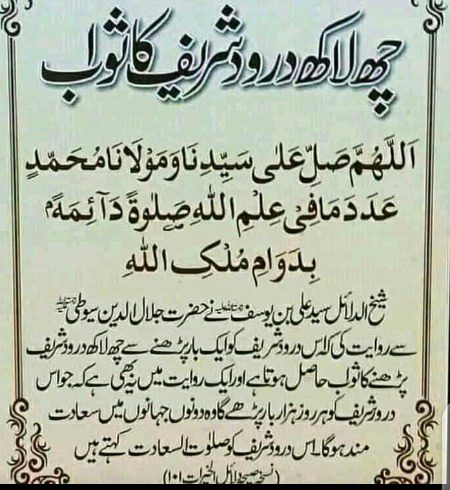 چھ لاکھ درود شریف کا ثواب
اَللّٰهُمَّ صَلِّ عَلٰى سَيِّدِنَا وَمَوْلَانَا مُحَمَّدٍ
عَدَدَ مَا فِيْ عِلْمِ اللهِ صَلٰوةً دَآئِمَةًۢ
بِدَوَامِ مُلْكِ اللهِ
شیخ الدلائل سید علی بن یوسف نے حضرت جلال الدین سیوطی
سے روایت کی کہ اس درود شریف کو ایک بار پڑھنے سے چھ لاکھ درود شریف
پڑھنے کا ثواب حاصل ہوتا ہے اور ایک روایت میں یہ بھی ہے کہ جو اس
درود شریف کو ہر روز ہزار بار پڑھے گا وہ دونوں جہانوں میں سعادت
مند ہوگا۔ اس درود شریف کو صلوٰت السعادت کہتے ہیں
(نسخہ صحیحہ دلائل الخیرات ۱۰۱)